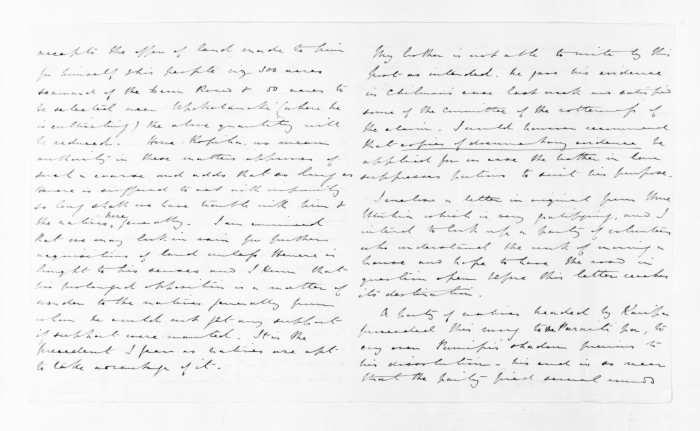 accepts the offer of land made to him
for himself & his people viz 300 acres
seaward of the Row & 50 acres to
be selected near (where he
is cultivating) the above quantity will
be reduced. no mean
authority in these matters approves of
such a course and adds that as long as
Hemere is suffered to act with impunity
so long shall we have trouble with him &
the natives here generally. I am convinced
that we may look in vain for further
acquisitions of land unless Hemere is
brought to his senses and I know that
his prolonged opposition is a matter of
wonder to the natives generally from
whom he could not get any support
if support were wanted. It is the
precedent I fear as natives are apt
to take advantage of it.
My brother is not able to write by this
post as intended. he gave his evidence
in case last week and satisfied
some of the committee of the rottenness of
the claim. I would however recommend
that copies of documentary evidence be
applied for in case the latter in
suppresses portions to suit his purpose.
I enclose a letter in original from
which is very gratifying, and I
intend to look up a party of volunteers
who understand the work of moving a
house and hope to have the road in
question open before this letter reaches
its destination.
A party of natives headed by
proceeded this morning to the pa, to
cry over shadow previous to
his dissolution - his end is so near
that the party fired several rounds